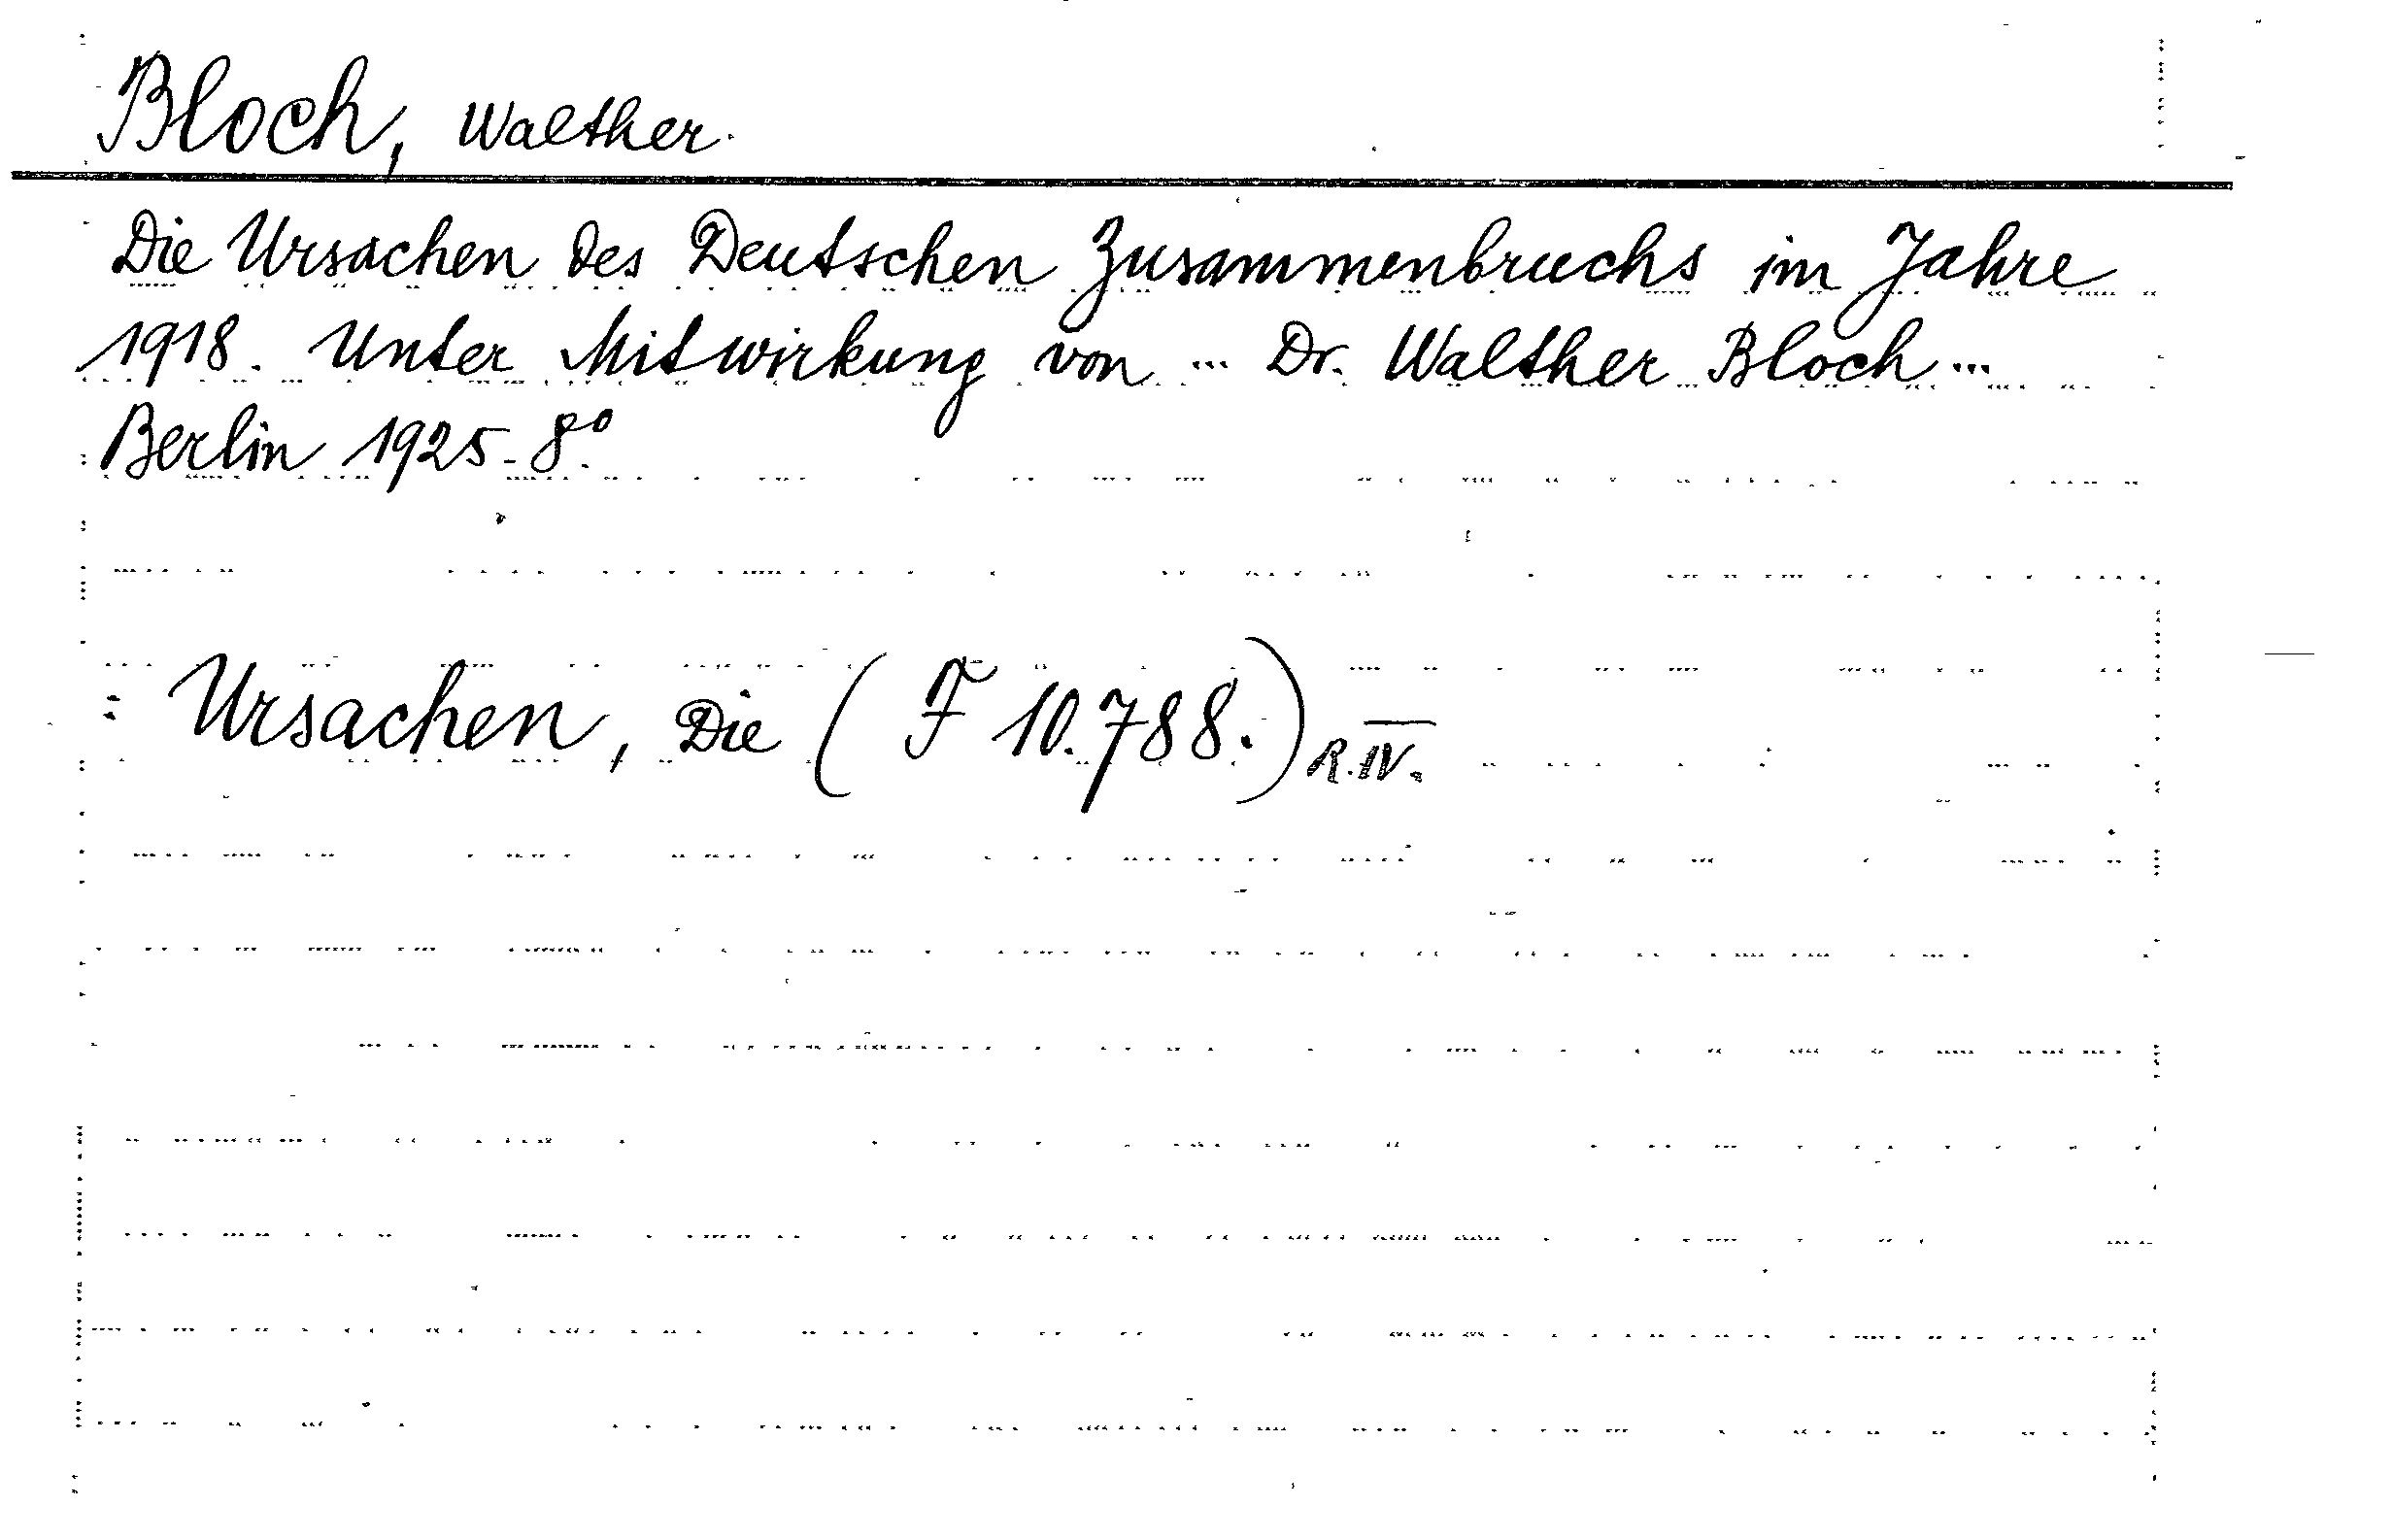 Bloch, Walther.
Die Ursachen des Deutschen Zusammenbruchs im Jahre
1918. Unter Mitwirkung von ... Dr. Walther Bloch ...
Berlin 1925. 8º
: Ursachen, Die ( F 10.788. ) R. IV.